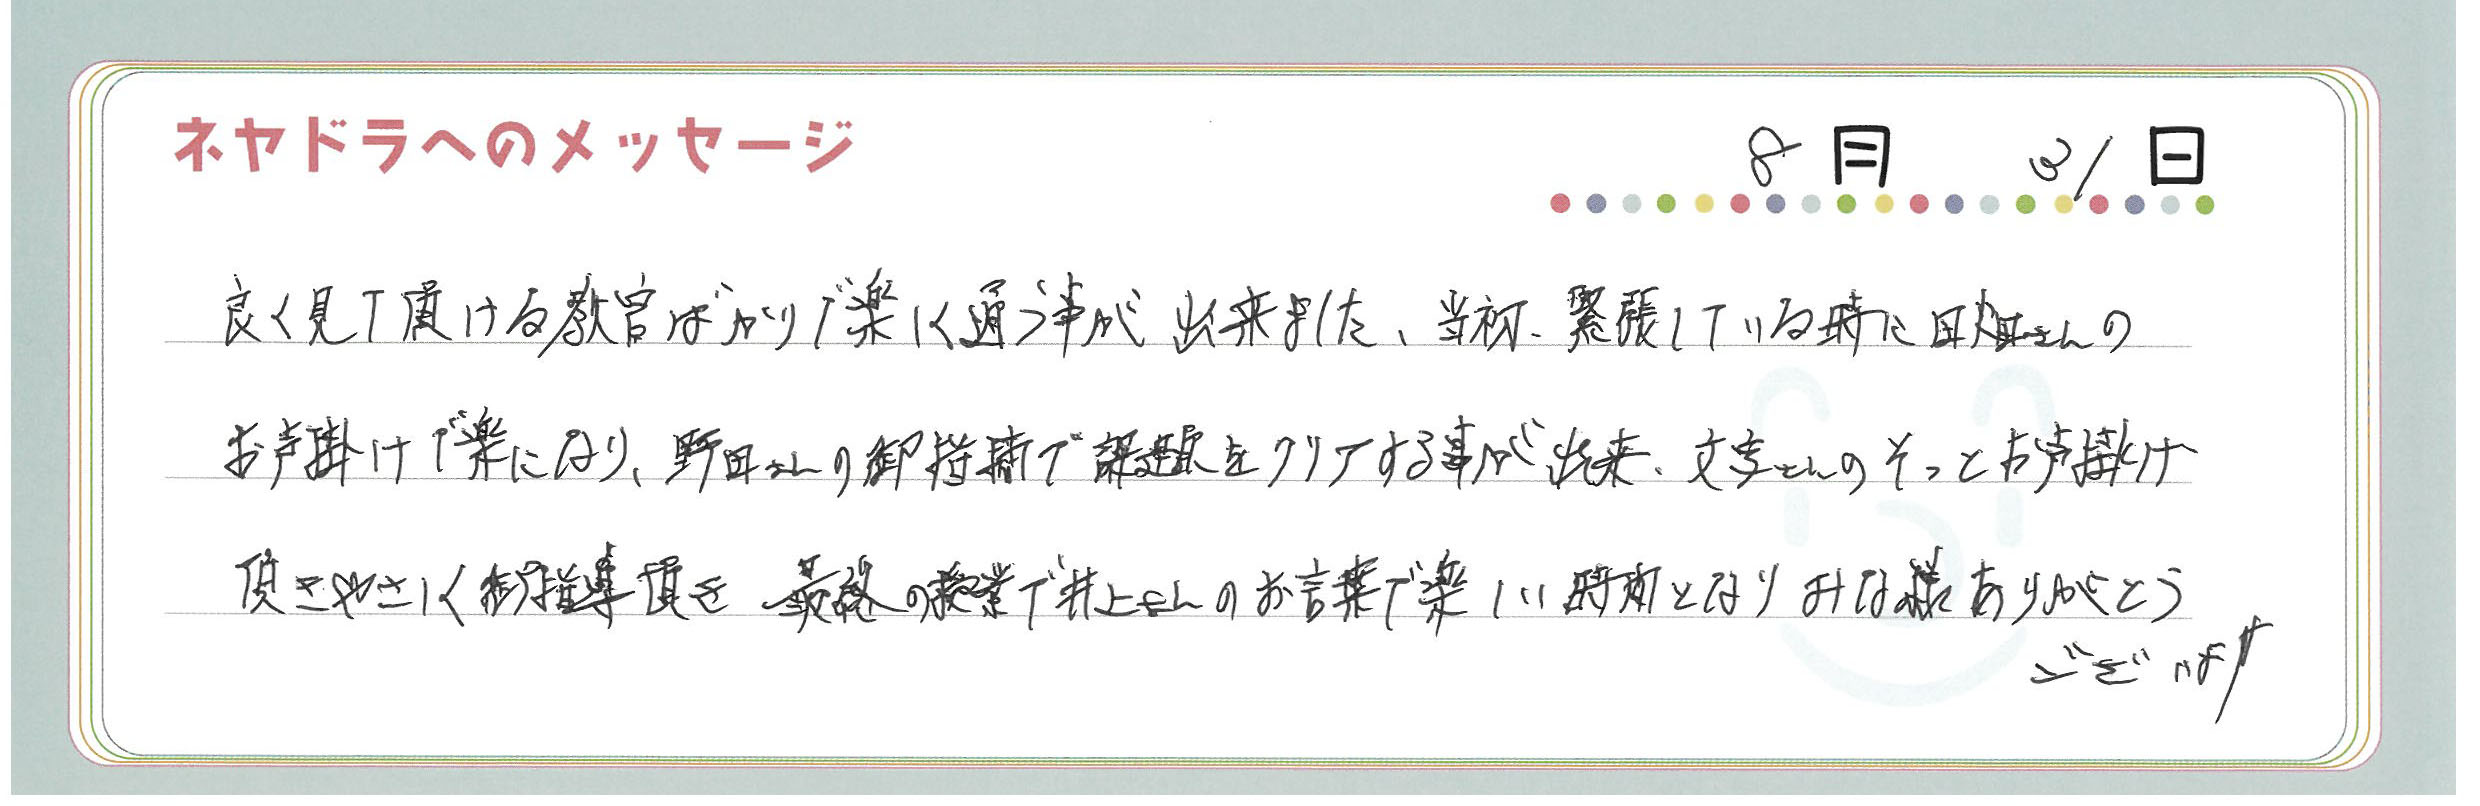 ネヤドラへのメッセージ
8月 31日
良く見て頂ける教官ばかりで楽しく通う事が出来ました、当初、緊張している時に田畑さんの
お声掛けで楽になり、野田さんの御指摘で課題をクリアする事が出来、文字さんのそっとお声掛け
頂きやさしく御指導頂き 最終の授業で井上さんのお言葉で楽しい時間となりみな様ありがとう
ございます